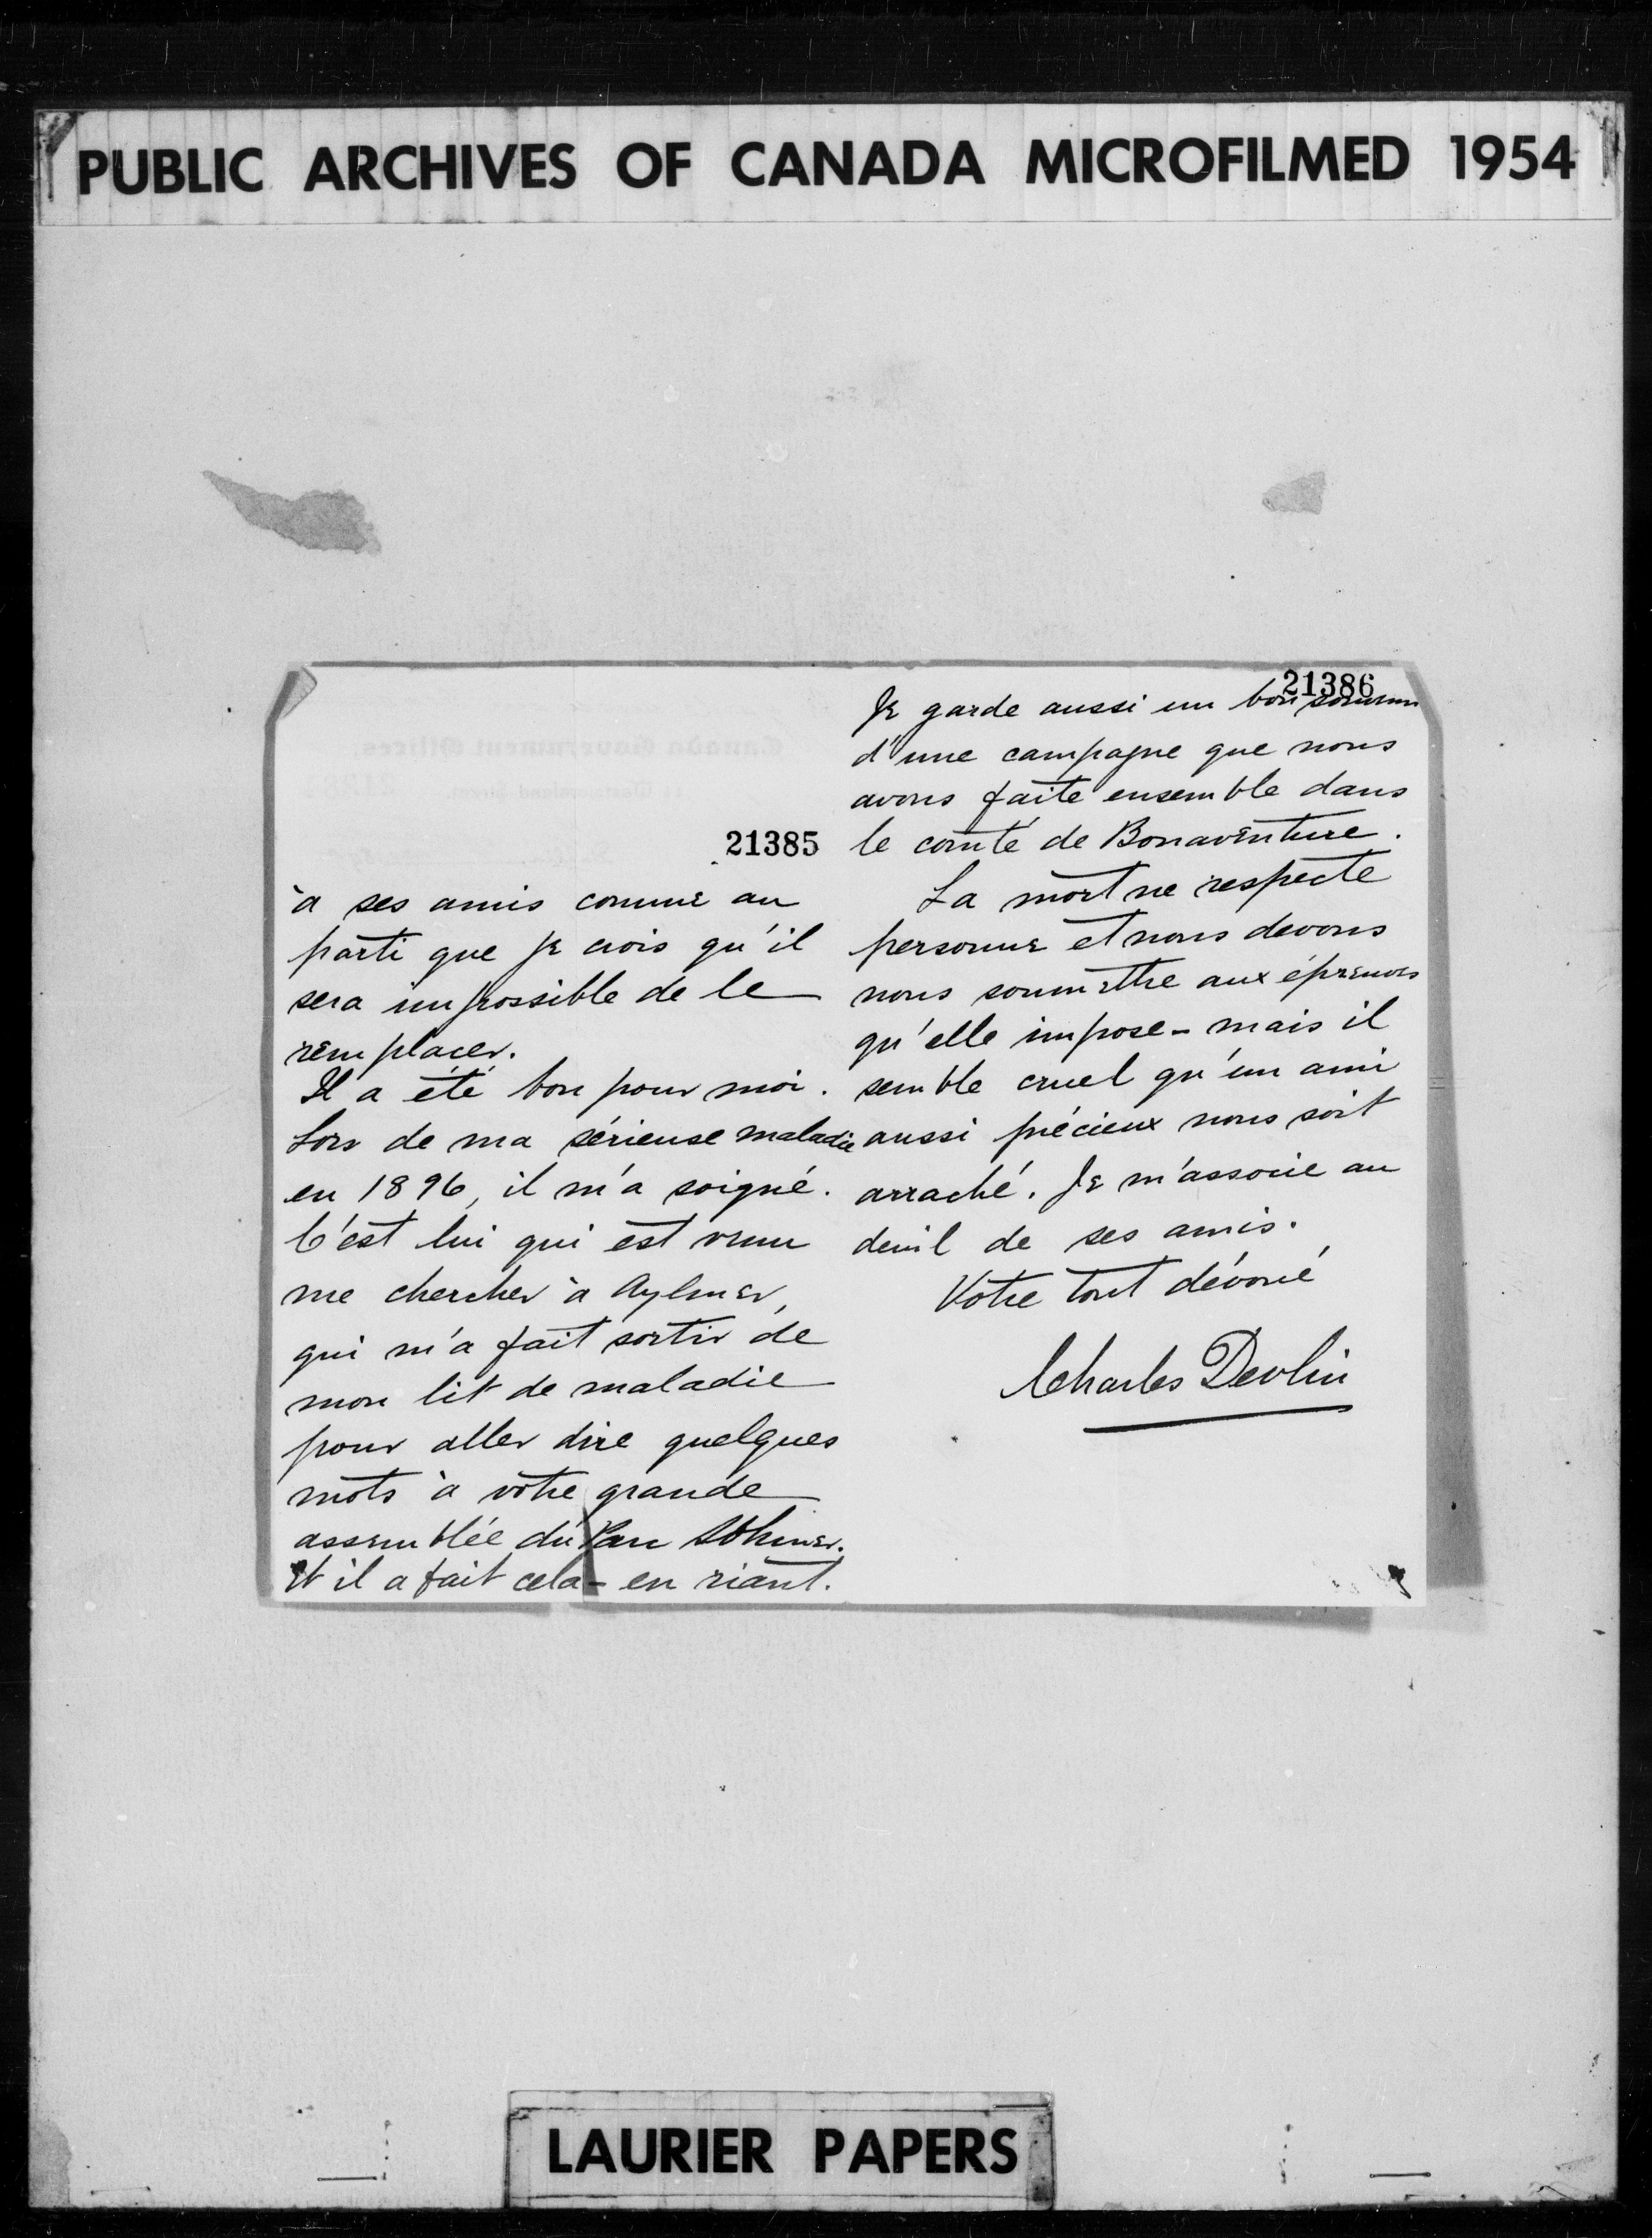 PUBLIC ARCHIVES OF CANADA MICROFILMED 1954
21385
à ses amis comme au
parti que je crois qu'il
sera impossible de le
remplacer.
Il a été bon pour moi.
Lors de ma sérieuse maladie
en 1896, il m'a soigné.
C'est lui qui est venu
me chercher à Aylmer,
qui m'a fait sortir de
mon lit de maladie
pour aller dire quelques
mots à votre grande
assemblée du Parc Sohmer.
Et il a fait cela - en riant.
21386
Je garde aussi un bon souvenir
d'une campagne que nous
avons faite ensemble dans
le comté de Bonaventure.
La mort ne respecte
personne et nous devons
nous soumettre aux épreuves
qu'elle impose - mais il
semble cruel qu'un ami
aussi précieux nous soit
arraché. Je m'associe au
deuil de ses amis.
Votre tout dévoué
Charles Devlin
LAURIER PAPERS